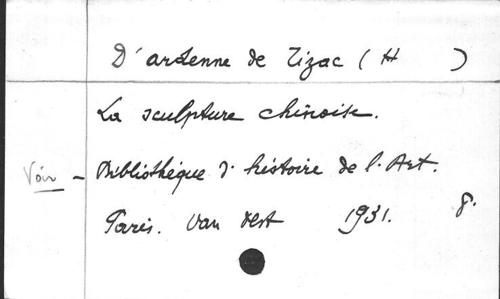 D'ardenne de Tizac (H )
La sculpture chinoise.
Voir - Bibliothèque d'histoire de l'Art.
Paris. Van Oest 1931. 8.